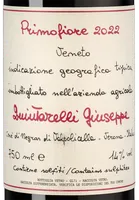 Primofiore 2022
Veneto
indicazione geografica tipica
imbottigliato nell'azienda agricola
Quintarelli Giuseppe
Cerè di Negrar di Valpolicella - Verona - Italia
750 ml e 14% vol
Contiene solfiti / Contains sulphites